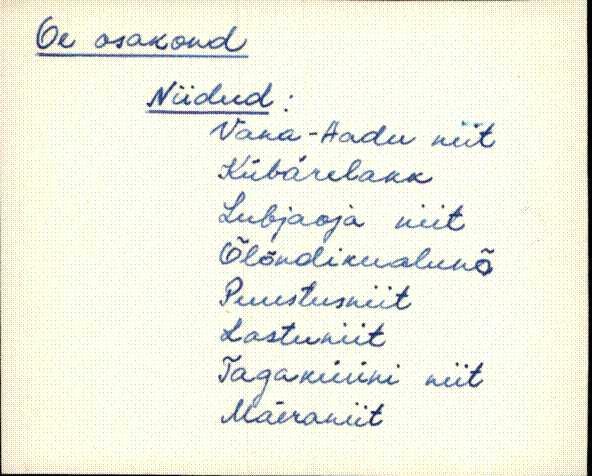 Oe osakond
Niidud:
Vana-Aadu niit
Kübärelakk
Lubjaoja niit
Õlõndikualunõ
Puustusniit
Lastuniit
Tagaküüni niit
Mäeraniit